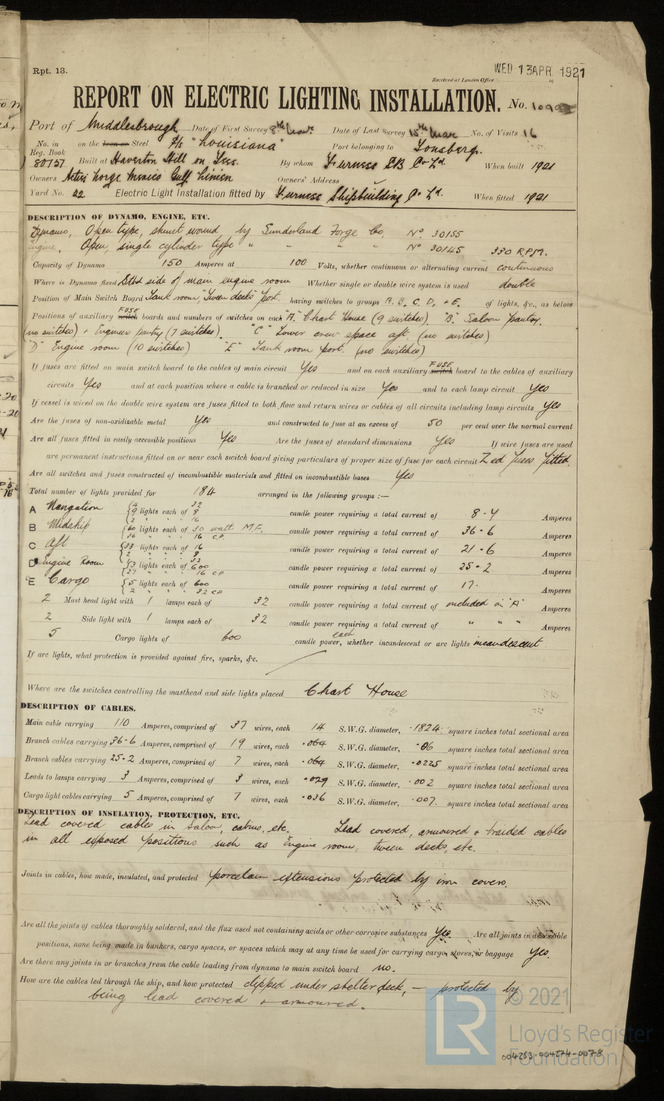 Rpt. 13.
WED 13 APR. 1921
Received at London Office
REPORT ON ELECTRIC LIGHTING INSTALLATION. No.
Port of Middlesbrough Date of First Survey 8th Date of Last Survey 15th Mar No. of Visits 16
No. in Reg. Book on the Iron or Steel S/s "Louisiana" Port belonging to Tonsberg.
Built at Haverton Hill on Tees By whom Furness S.B. Co Ld. When built 1921
Owners Owners' Address
Yard No. 22 Electric Light Installation fitted by Furness Shipbuilding Co Ld. When fitted 1921
DESCRIPTION OF DYNAMO, ENGINE, ETC.
Dynamo, Open type, shunt wound by Sunderland Forge Co, No 30155
Engine, Open, single cylinder type " " " " No 30145 330 RPM.
Capacity of Dynamo 150 Amperes at 100 Volts, whether continuous or alternating current continuous
Where is Dynamo fixed Stbd side of main engine room Whether single or double wire system is used double
Position of Main Switch Board Tank room, 'Tween decks port. having switches to groups A, B, C, D, + E. of lights, &c., as below
Positions of auxiliary switch FUSE boards and numbers of switches on each "A" Chart House (9 switches), "B" Saloon pantry,
(no switches) + Engineers pantry (7 switches) "C" Lower space aft, (no switches)
"D" Engine room (10 switches) "E" Tank room port. (no switches)
If fuses are fitted on main switch board to the cables of main circuit Yes and on each auxiliary switch FUSE board to the cables of auxiliary
circuits Yes and at each position where a cable is branched or reduced in size Yes and to each lamp circuit Yes
If vessel is wired on the double wire system are fuses fitted to both flow and return wires or cables of all circuits including lamp circuits Yes
Are the fuses of non-oxidizable metal Yes and constructed to fuse at an excess of 50 per cent over the normal current
Are all fuses fitted in easily accessible positions Yes Are the fuses of standard dimensions Yes If wire fuses are used
are permanent instructions fitted on or near each switch board giving particulars of proper size of fuse for each circuit Zed fuses fitted
Are all switches and fuses constructed of incombustible materials and fitted on incombustible bases Yes
Total number of lights provided for 184 arranged in the following groups :—
A Navigation lights each of candle power requiring a total current of 8.4 Amperes
B Midship 60 lights each of 30 watt M.F. candle power requiring a total current of 36.6 Amperes
C Aft lights each of 16 candle power requiring a total current of 21.6 Amperes
D Engine Room lights each of 600 candle power requiring a total current of 25.2 Amperes
E Cargo 5 lights each of 600 candle power requiring a total current of 17. Amperes
2 " " " 32 CP
2 Mast head light with 1 lamps each of 32 candle power requiring a total current of included in "A" Amperes
2 Side light with 1 lamps each of 32 candle power requiring a total current of " " " Amperes
5 Cargo lights of 600 each candle power, whether incandescent or arc lights incandescent
If arc lights, what protection is provided against fire, sparks, &c.
Where are the switches controlling the masthead and side lights placed Chart House
DESCRIPTION OF CABLES.
Main cable carrying 110 Amperes, comprised of 37 wires, each 14 S.W.G. diameter, .1824 square inches total sectional area
Branch cables carrying 36.6 Amperes, comprised of 19 wires, each .064 S.W.G. diameter, .06 square inches total sectional area
Branch cables carrying 25.2 Amperes, comprised of 7 wires, each .064 S.W.G. diameter, .0225 square inches total sectional area
Leads to lamps carrying 3 Amperes, comprised of 3 wires, each .029 S.W.G. diameter, .002 square inches total sectional area
Cargo light cables carrying 5 Amperes, comprised of 7 wires, each .036 S.W.G. diameter, .007 square inches total sectional area
DESCRIPTION OF INSULATION, PROTECTION, ETC.
Lead covered cables in Saloon, cabins, etc. Lead covered, armoured + braided cables
in all exposed positions such as Engine room, tween decks, etc.
Joints in cables, how made, insulated, and protected porcelain extensions protected by iron covers.
Are all the joints of cables thoroughly soldered, and the flux used not containing acids or other corrosive substances Yes. Are all joints in accessible
positions, none being made in bunkers, cargo spaces, or spaces which may at any time be used for carrying cargo, stores, or baggage Yes.
Are there any joints in or branches from the cable leading from dynamo to main switch board no.
How are the cables led through the ship, and how protected clipped under shelter deck, — protected by
being lead covered + armoured.
LR © 2021
Lloyd's Register
Foundation
004263-004274-0078